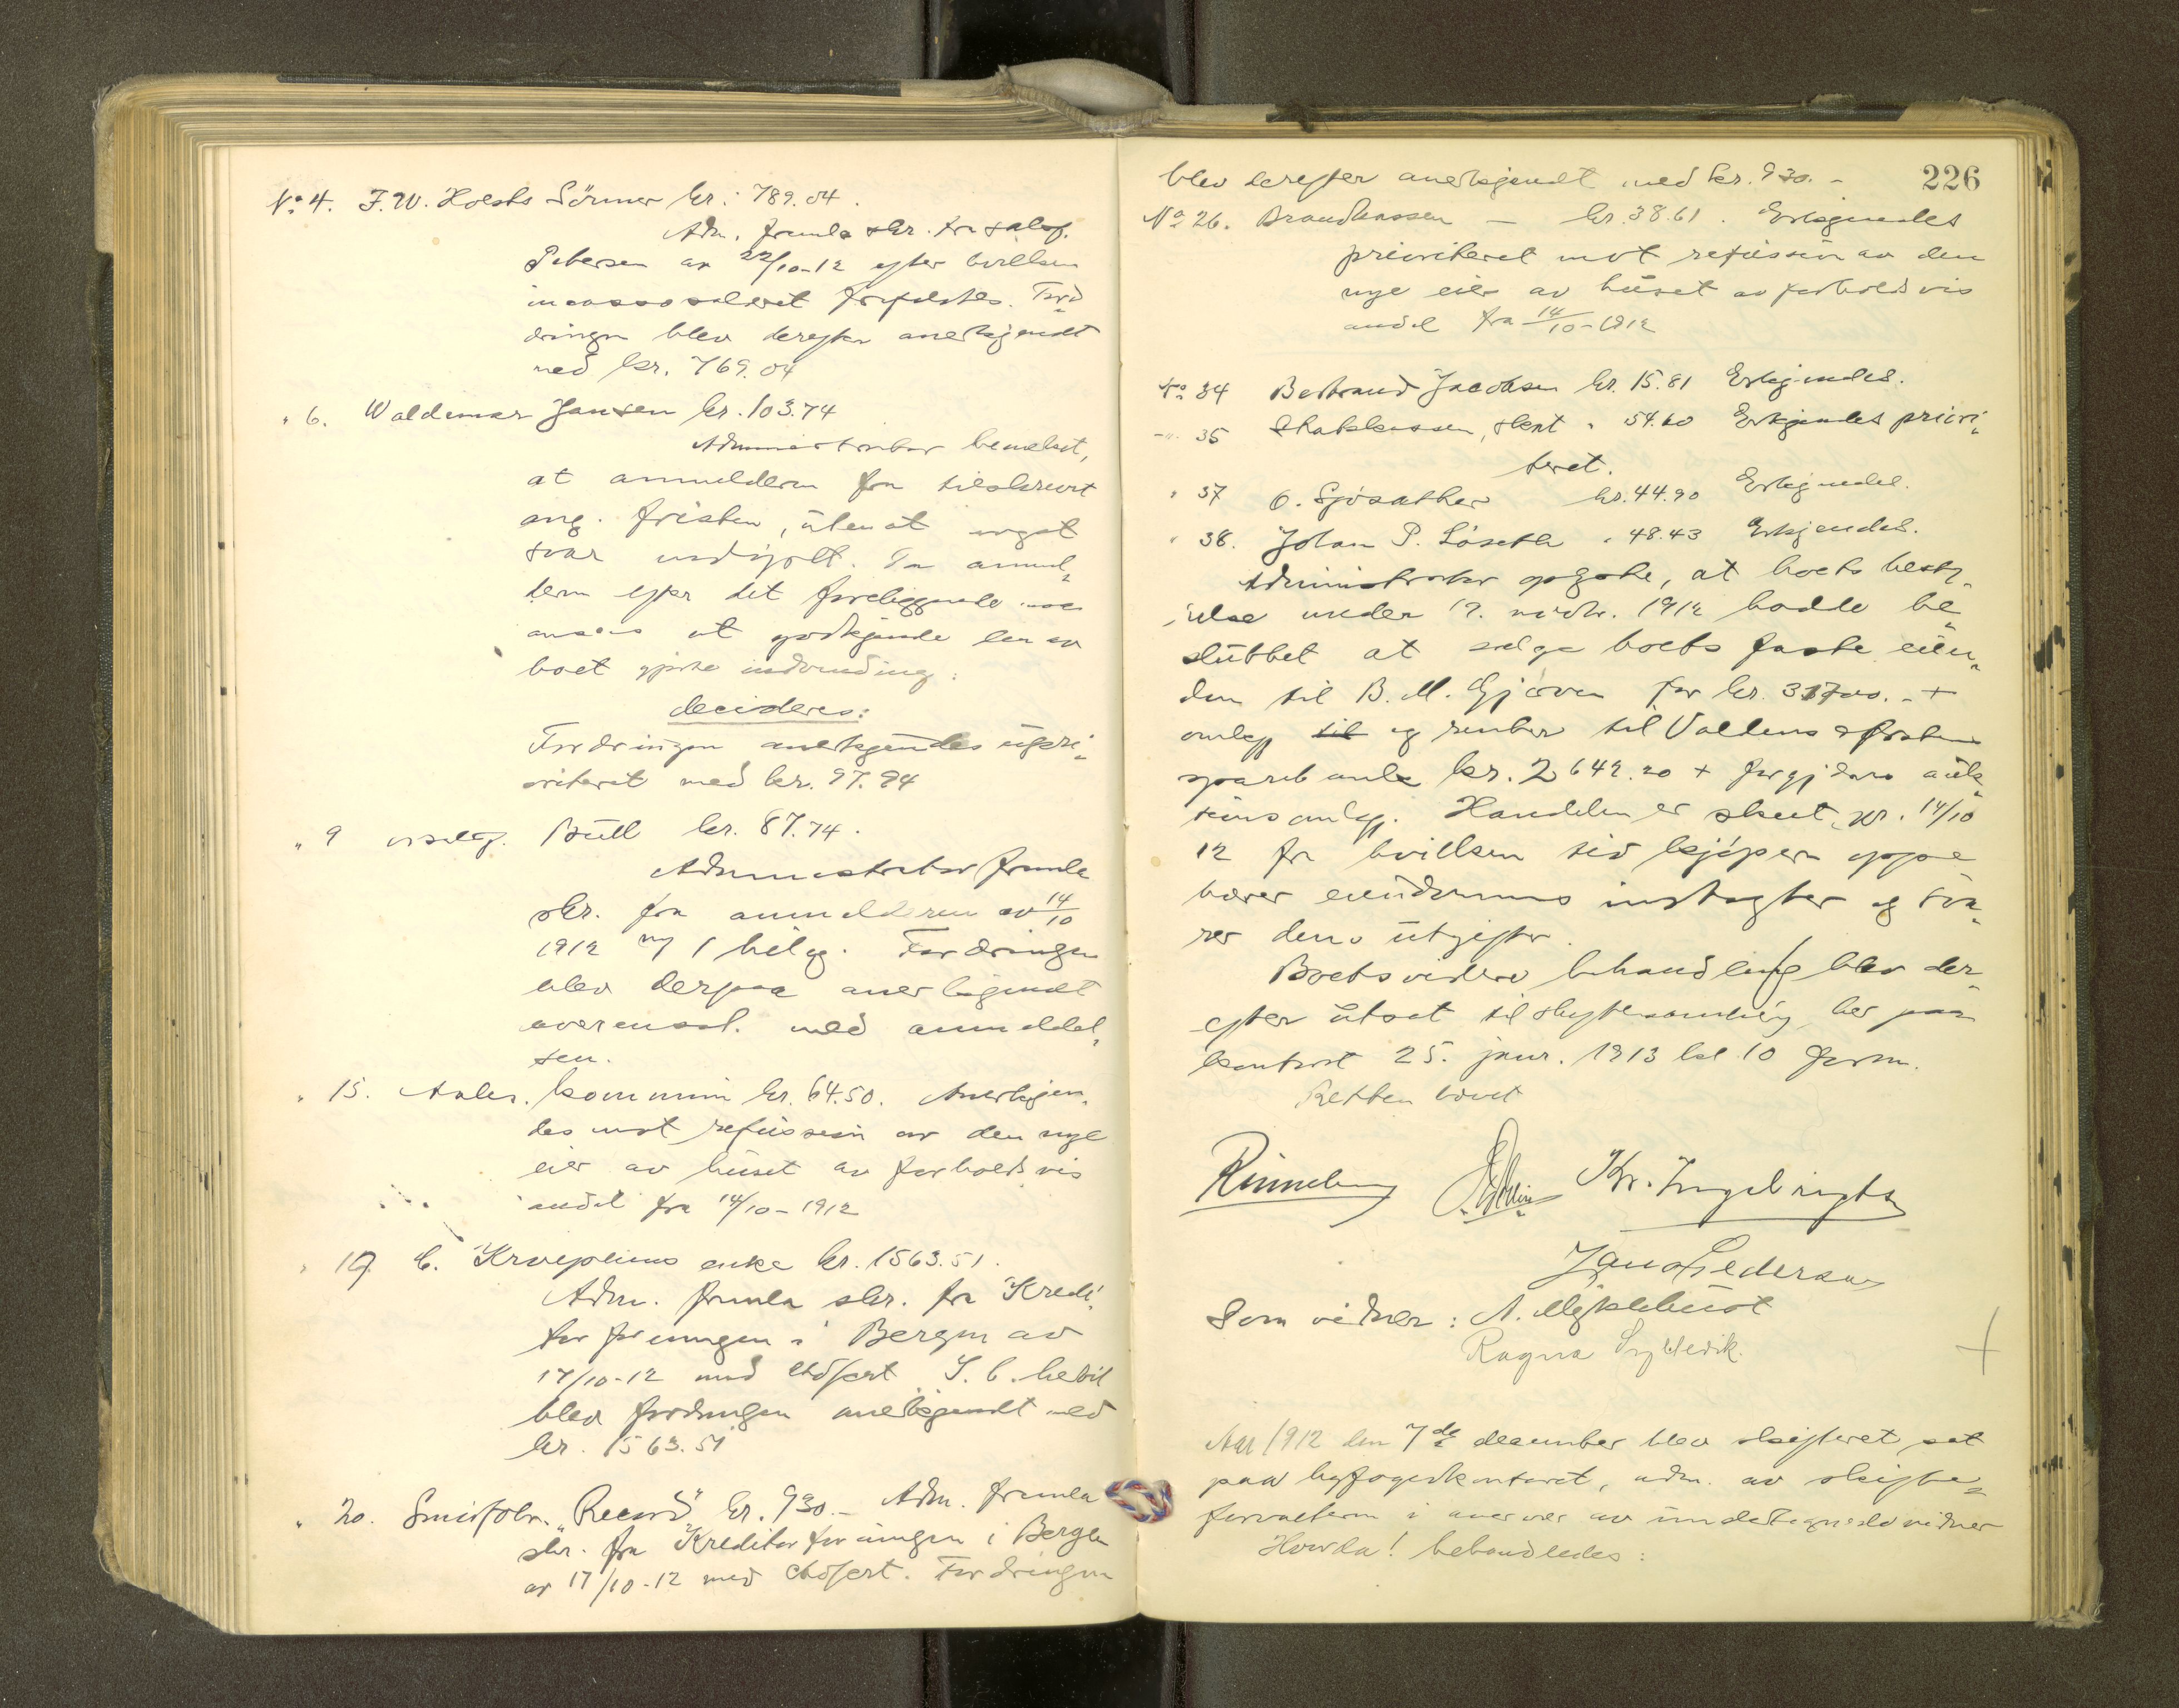 No 4. F. W. Holsts Sönner kr. 789.04.
Adm. fremla skr. fra sakf.
Petersen av 22/10-12 efter hvilken
incassosalæret frafaldtes. For„
dringen blev derefter anerkjendt
med kr. 769.04
" 6. Waldemar Jansen kr. 103.74
Administrator bemerket,
at anmelderen fra tilskrevet
ang. fristen, uten at noget
svar indgik. Da anmel„
deren efter det foreliggende maa
ansees at godkjende den av
boet gjorte indvending:
decideres:
Fordringen anerkjendes upri„
oriteret med kr. 97.94
" 9 Bull kr. 87.74.
Administrator fremla
skr. fra anmelderen av 14/10
1912 m/ 1 bilag. Fordringen
blev derpaa anerkjendt
overensst. med anmeldel„
sen.
" 15. Aales. kommune kr. 64.50. Anerkjen„
des mot refusion av den nye
eier av huset av forholdsvis
andel fra 14/10-1912
" 19 C. Kroepliens enke kr. 1563.51.
Adm. fremla skr. fra Kredi„
torforeningen i Bergen av
17/10-12 med
blev fordringen anerkjendt med
kr. 1563.51
" 20. Smørfabr. "Record" kr. 930.- Adm. fremla
skr. fra Kreditorforeningen i Bergen
av 17/10-12 med Fordringen
226
blev derefter anerkjendt med kr. 930.-
No 26. Brandkassen — kr. 38.61. Erkjendes
prioriteret mot refusion av den
nye eier av huset av forholdsvis
andel fra 14/10-1912
No 34 Bertrand Jacobsen kr. 15.81 Erkjendes.
-"- 35 Skatskassen, skat " 54.60 Erkjendes priori„
teret.
" 37 O. Sjösæther kr. 44.90 Erkjendes.
" 38. Johan P. Löseth " 48.43 Erkjendes.
Administrator opgste, at boets besty„
relse under 19. novbr. 1912 hadde be„
sluttet at sælge boets faste eien„
dom til B. M. Gjærven for kr. 31700.- +
omkg til og renter til Voldens &
sparebank kr. 2642.20 + auk„
sions omkg. Handelen er sluttet pr. 14/10
12 fra hvilken tid kjøperen oppe
bærer eiendommens indtægter og sva„
rer dens utgifter.
Boets videre behandling blev der„
efter utsat til skiftesamling her paa
kontoret 25. janr. 1913 kl 10 form.
Retten hævet
Kr. Ingebrigtsen
Som vidner: A. Myklebust
Ragna
Aar 1912 den 7de december blev skifteret sat
paa byfogedkontoret, adm. av skifte„
forvalteren i overvær av undertegnede vidner
Hvorda! behandledes: